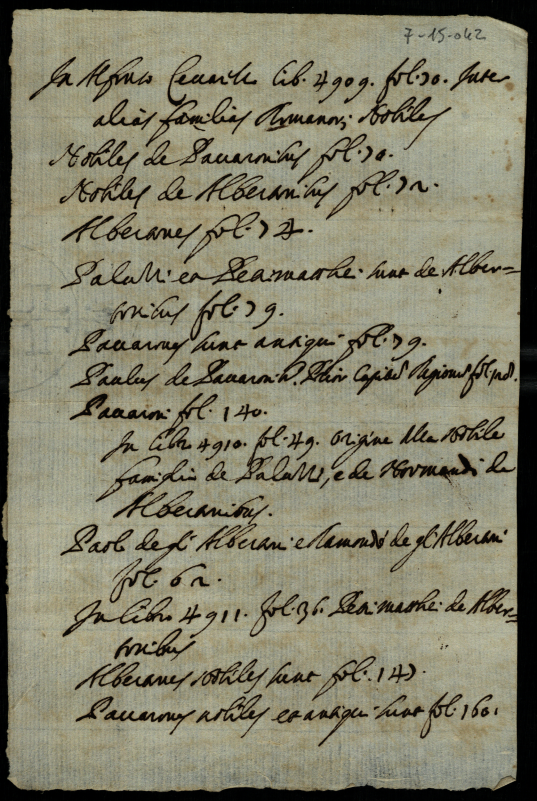 7-15-042
In Alfonso Ceccarelli lib. 4909. fol. 70. Inter
alias familias Romanor. Nobiles
Nobiles de Pauaronibus fol. 70.
Nobiles de Alberanibus fol. 72.
Alberanes fol. 74.
Palutii et Petrimatthei sunt de Alber=
tonibus fol. 79.
Pauarones sunt antiqui fol. 79.
Paulus de Pauaronib. Prior Capitum Regionum fol.
Pauaroni fol. 140.
In libro 4910. fol. 49. origine della Nobile
famiglia de Palutii, e de Normandi de
Alberanibus.
Paolo de gl' Alberani e Ramondo de gl' Alberani
fol. 62.
In libro 4911. fol. 36. Petrimatthei de Alber=
tonibus
Alberanes Nobiles sunt fol. 147.
Pauarones nobiles et antiqui sunt fol. 160.